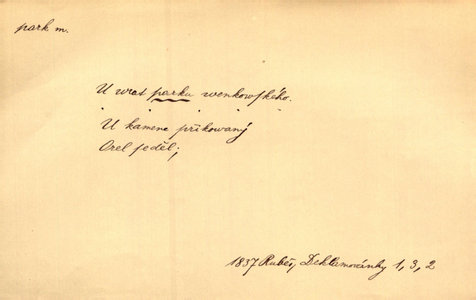 park m.
U vrat parku wenkowſkého.
. . . .
U kamene přikowaný
Orel ſeděl;
1837 Rubeš, Deklamowánky 1, 3, 2